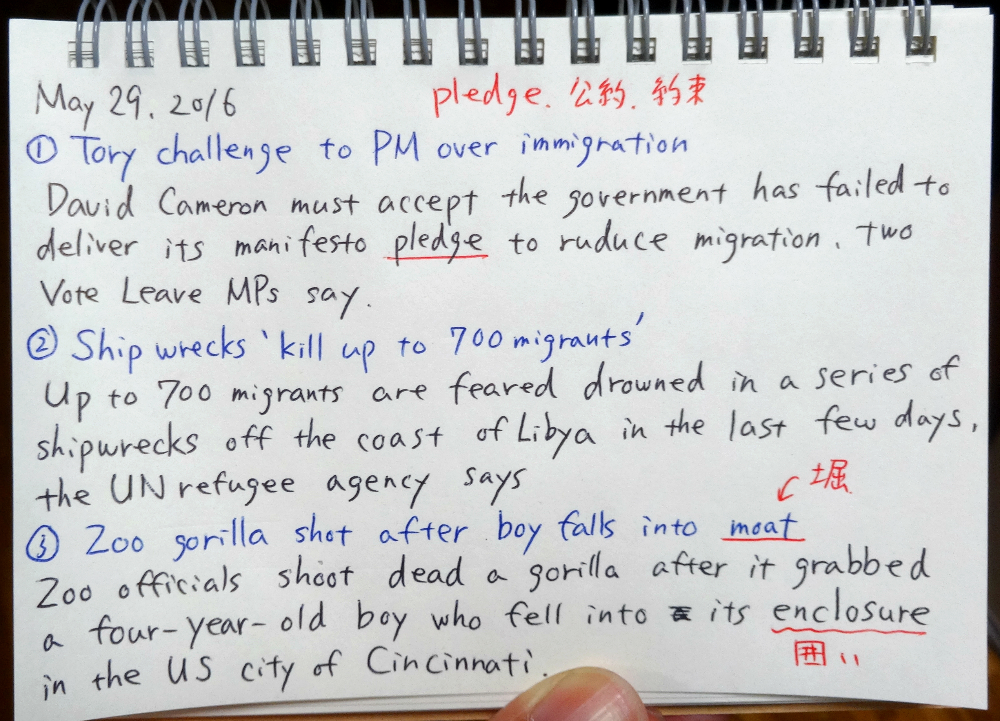 May 29, 2016
pledge. 公約. 約束
① Tory challenge to PM over immigration
David Cameron must accept the government has failed to
deliver its manifesto pledge to ruduce migration, two
Vote Leave MPs say.
② Ship wrecks 'kill up to 700 migrants'
Up to 700 migrants are feared drowned in a series of
shipwrecks off the coast of Libya in the last few days,
the UN refugee agency says
堀
③ Zoo gorilla shot after boy falls into moat
Zoo officials shoot dead a gorilla after it grabbed
a four-year-old boy who fell into its enclosure
囲い
in the US city of Cincinnati.